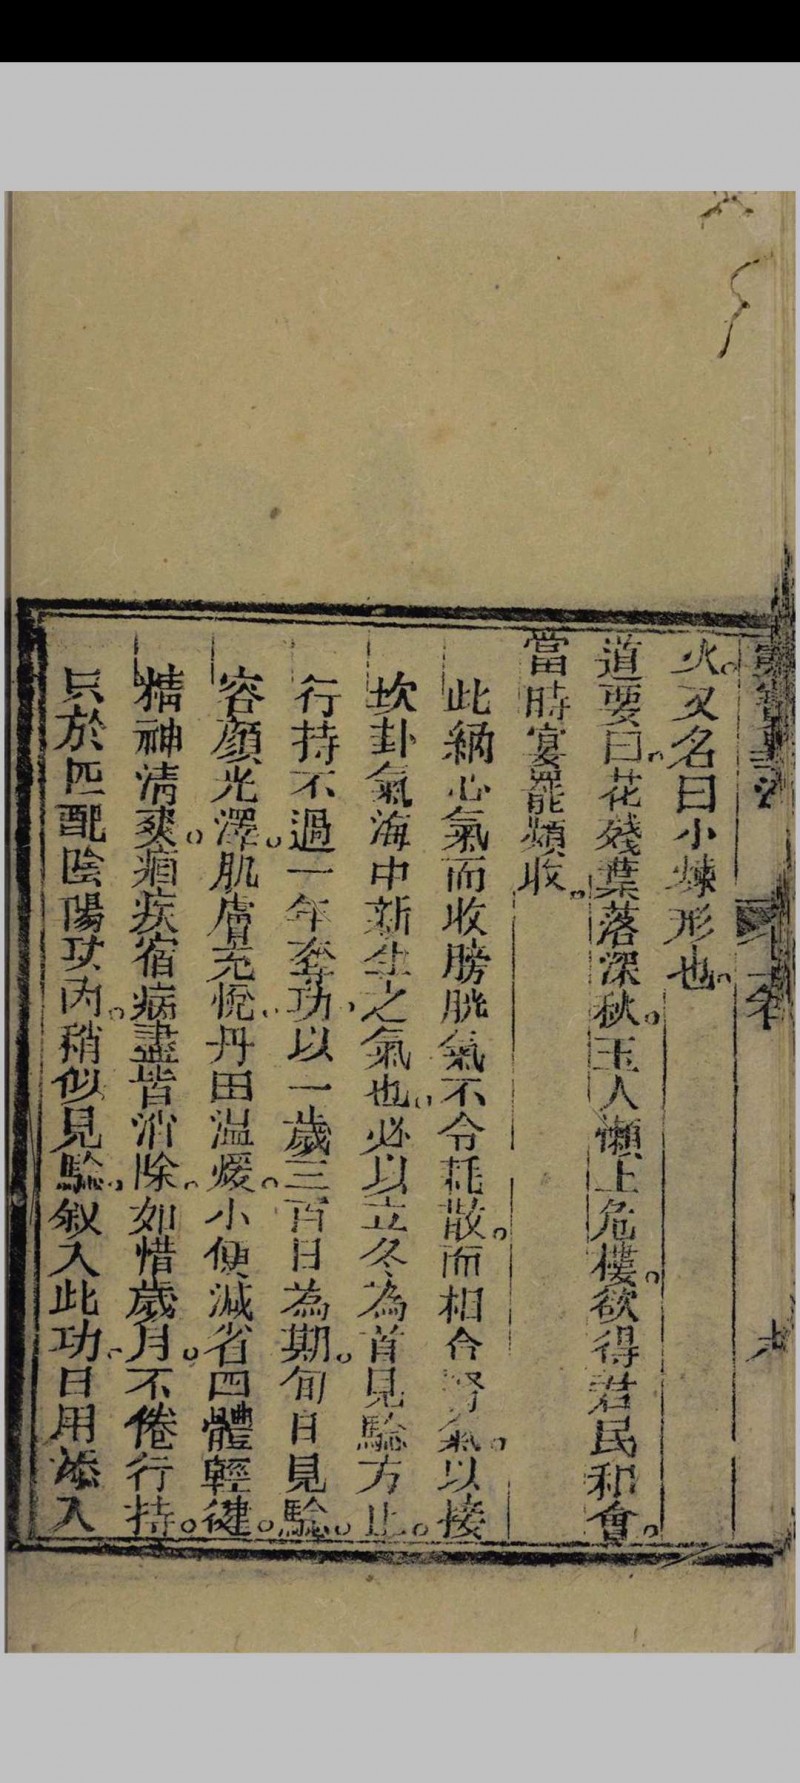 火又名曰小煉形也
道要曰花殘葉落深秋玉人懶上危樓欲得君民和會
當時宴罷頻收
此納心氣而收膀胱氣不令耗散而相合腎氣以接
坎卦氣海中新生之氣也必以立冬為首見驗方止
行持不過一年奪功以一歲三百日為期旬日見驗
容顏光澤肌膚充悅丹田温煖小便減省四體輕健
精神清爽痼疾宿病盡皆消除如惜歲月不倦行持
只於匹配陰陽功內稍似見驗敘入此功日用添入